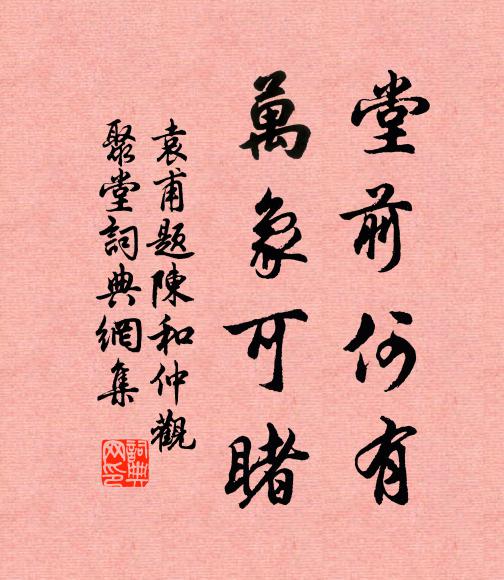 堂前何有
萬象可睹
袁甫題陳和仲觀
聚堂詞典網集
詞典網印